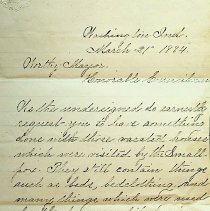 Washington Ind.
March 21st 1884.
Worthy Mayor.
Honorable Council
We the undersigned do earnestly
request you to have something
done with those vacated houses
which were visited by the Small
pox. They still contain things
such as beds, bedclothing, and
many things which were used